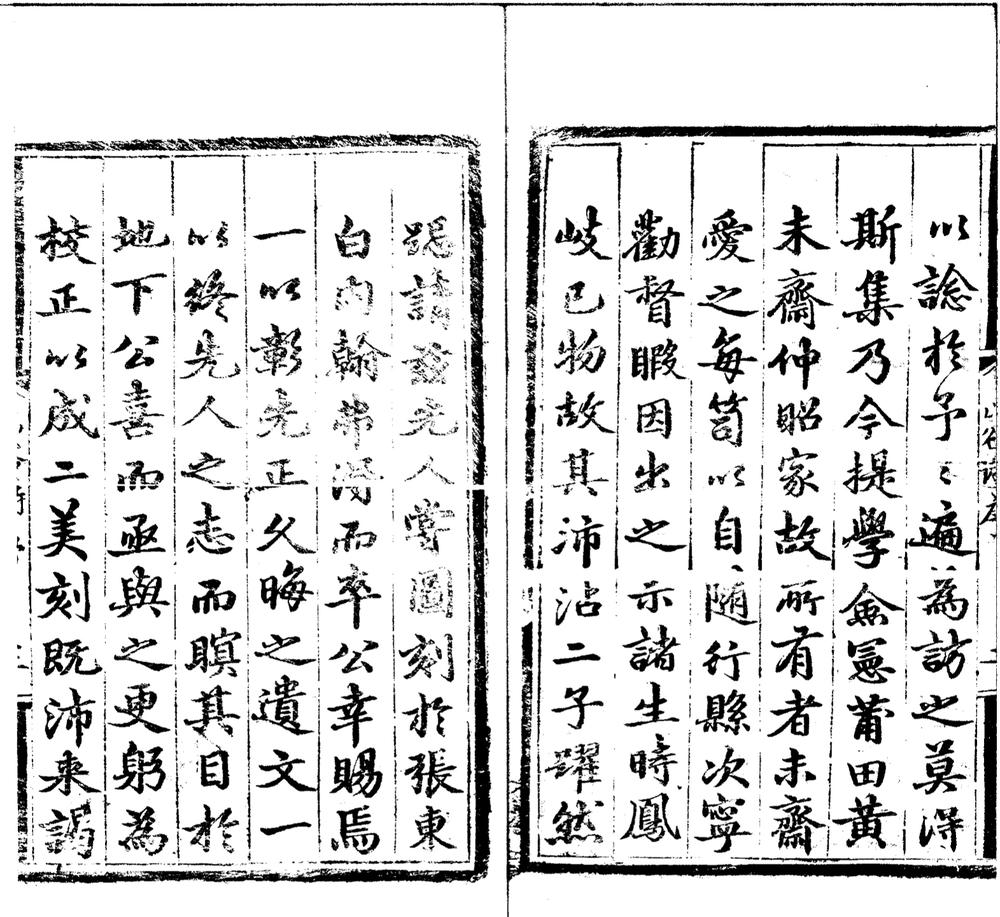 以諗於予〻遍為訪之莫得
斯集乃今提學僉憲莆田黄
未齋仲昭家故所有者未齋
愛之每笥以自随行縣次寧
勸督暇因出之示諸生時鳳
岐已物故其沛沾二子躍然
跽請玆先人嘗圖刻於張東
白内翰弗得而卒公幸賜焉
一以彰先正久晦之遺文一
以終先人之志而瞑其目於
地下公喜而亟與之更躬為
校正以成二美刻既沛来謁